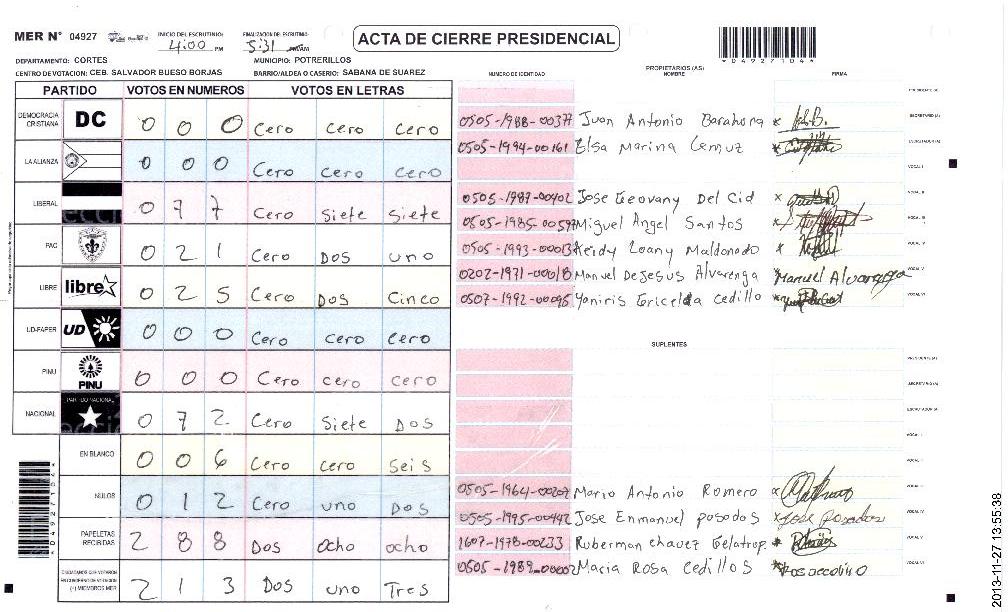 MER N° 04927
INICIO DEL ESCRUTINIO:
4:00 PM
FINALIZACION DEL ESCRUTINIO:
5:31
ACTA DE CIERRE PRESIDENCIAL
*04927104*
DEPARTAMENTO: CORTES
MUNICIPIO: POTRERILLOS
CENTRO DE VOTACION: CEB. SALVADOR BUESO BORJAS
BARRIO/ALDEA O CASERIO: SABANA DE SUAREZ
PARTIDO VOTOS EN NUMEROS VOTOS EN LETRAS
DEMOCRACIA CRISTIANA DC 0 0 0 Cero Cero Cero
LA ALIANZA 0 0 0 Cero Cero Cero
LIBERAL 0 7 7 Cero Siete Siete
PAC 0 2 1 Cero Dos uno
LIBRE libre 0 2 5 Cero Dos Cinco
UD-FAPER UD 0 0 0 Cero cero Cero
PINU PINU 0 0 0 Cero cero cero
NACIONAL PARTIDO NACIONAL 0 7 2 Cero Siete Dos
EN BLANCO 0 0 6 Cero cero Seis
NULOS 0 1 2 Cero uno Dos
PAPELETAS RECIBIDAS 2 8 8 Dos ocho ocho
CIUDADANOS QUE VOTARON EN CUADERNO DE VOTACION (+) MIEMBROS MER 2 1 3 Dos uno Tres
*04927104*
PROPIETARIOS (AS)
NUMERO DE IDENTIDAD NOMBRE FIRMA
PRESIDENTE (A)
0505-1988-00377 Juan Antonio Barahona SECRETARIO (A)
0505-1994-00161 Elsa Marina ESCRUTADOR (A)
VOCAL I
0505-1987-00402 Jose Geovany Del Cid VOCAL II
0505-1985-00597 Miguel Angel Santos VOCAL III
0505-1993-00013 Keidy Loany Maldonado VOCAL IV
0202-1971-00018 Manuel DeJesus Alvarenga Manuel Alvarenga VOCAL V
0507-1992-00095 Yoniris Gricelda Cedillo VOCAL VI
SUPLENTES
PRESIDENTE (A)
SECRETARIO (A)
ESCRUTADOR (A)
VOCAL I
VOCAL II
0505-1964-00202 Mario Antonio Romero
0505-1995-00442 Jose Enmanuel posados Jose Posados VOCAL IV
1607-1978-00233 Ruberman chavez VOCAL V
0505-1989-00002 Maria Rosa Cedillos VOCAL VI
2013-11-27 13:55:38